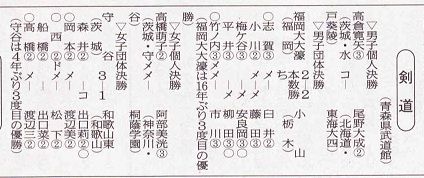 剣道
（青森県武道館）
▽男子個人決勝
高倉寛矢③ メ― 尾野大成②
（茨城・水戸葵陵） コ （北海道・東海大四）
▽男子団体決勝
福岡大大濠 2―2 小山
（福岡） 本数勝ち （栃木）
○志賀③メ― 臼井②
小川②メ― 藤田③
梅ケ谷③ ―メ 安良岡③○
平井③ ―メ 柳田③○
○竹ノ内③メ― 市川③
（福岡大大濠は16年ぶり3度目の優勝）
▽女子個人決勝
高橋萌子② メ― 阿部美洸③
（茨城・守谷） メ （神奈川・桐蔭学園）
▽女子団体決勝
守谷 3―1 和歌山東
（茨城） （和歌山）
森井② ―コ 出口莉②○
○岡本②メ― 渡辺美②
○西②ドメ― 松下②
船橋②― 出口菜②
○高橋②メ― 渡辺三②
（守谷は4年ぶり3度目の優勝）